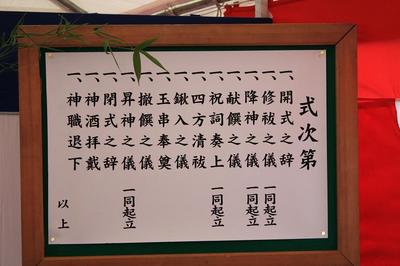 式次第
一、開式之辞
一、修祓之儀 一同起立
一、降神之儀 一同起立
一、献饌之儀
一、祝詞奏上 一同起立
一、四方清祓
一、鍬入之儀
一、玉串奉奠
一、撤饌之儀
一、昇神之儀 一同起立
一、閉式之辞
一、神酒拝戴
一、神職退下
以上